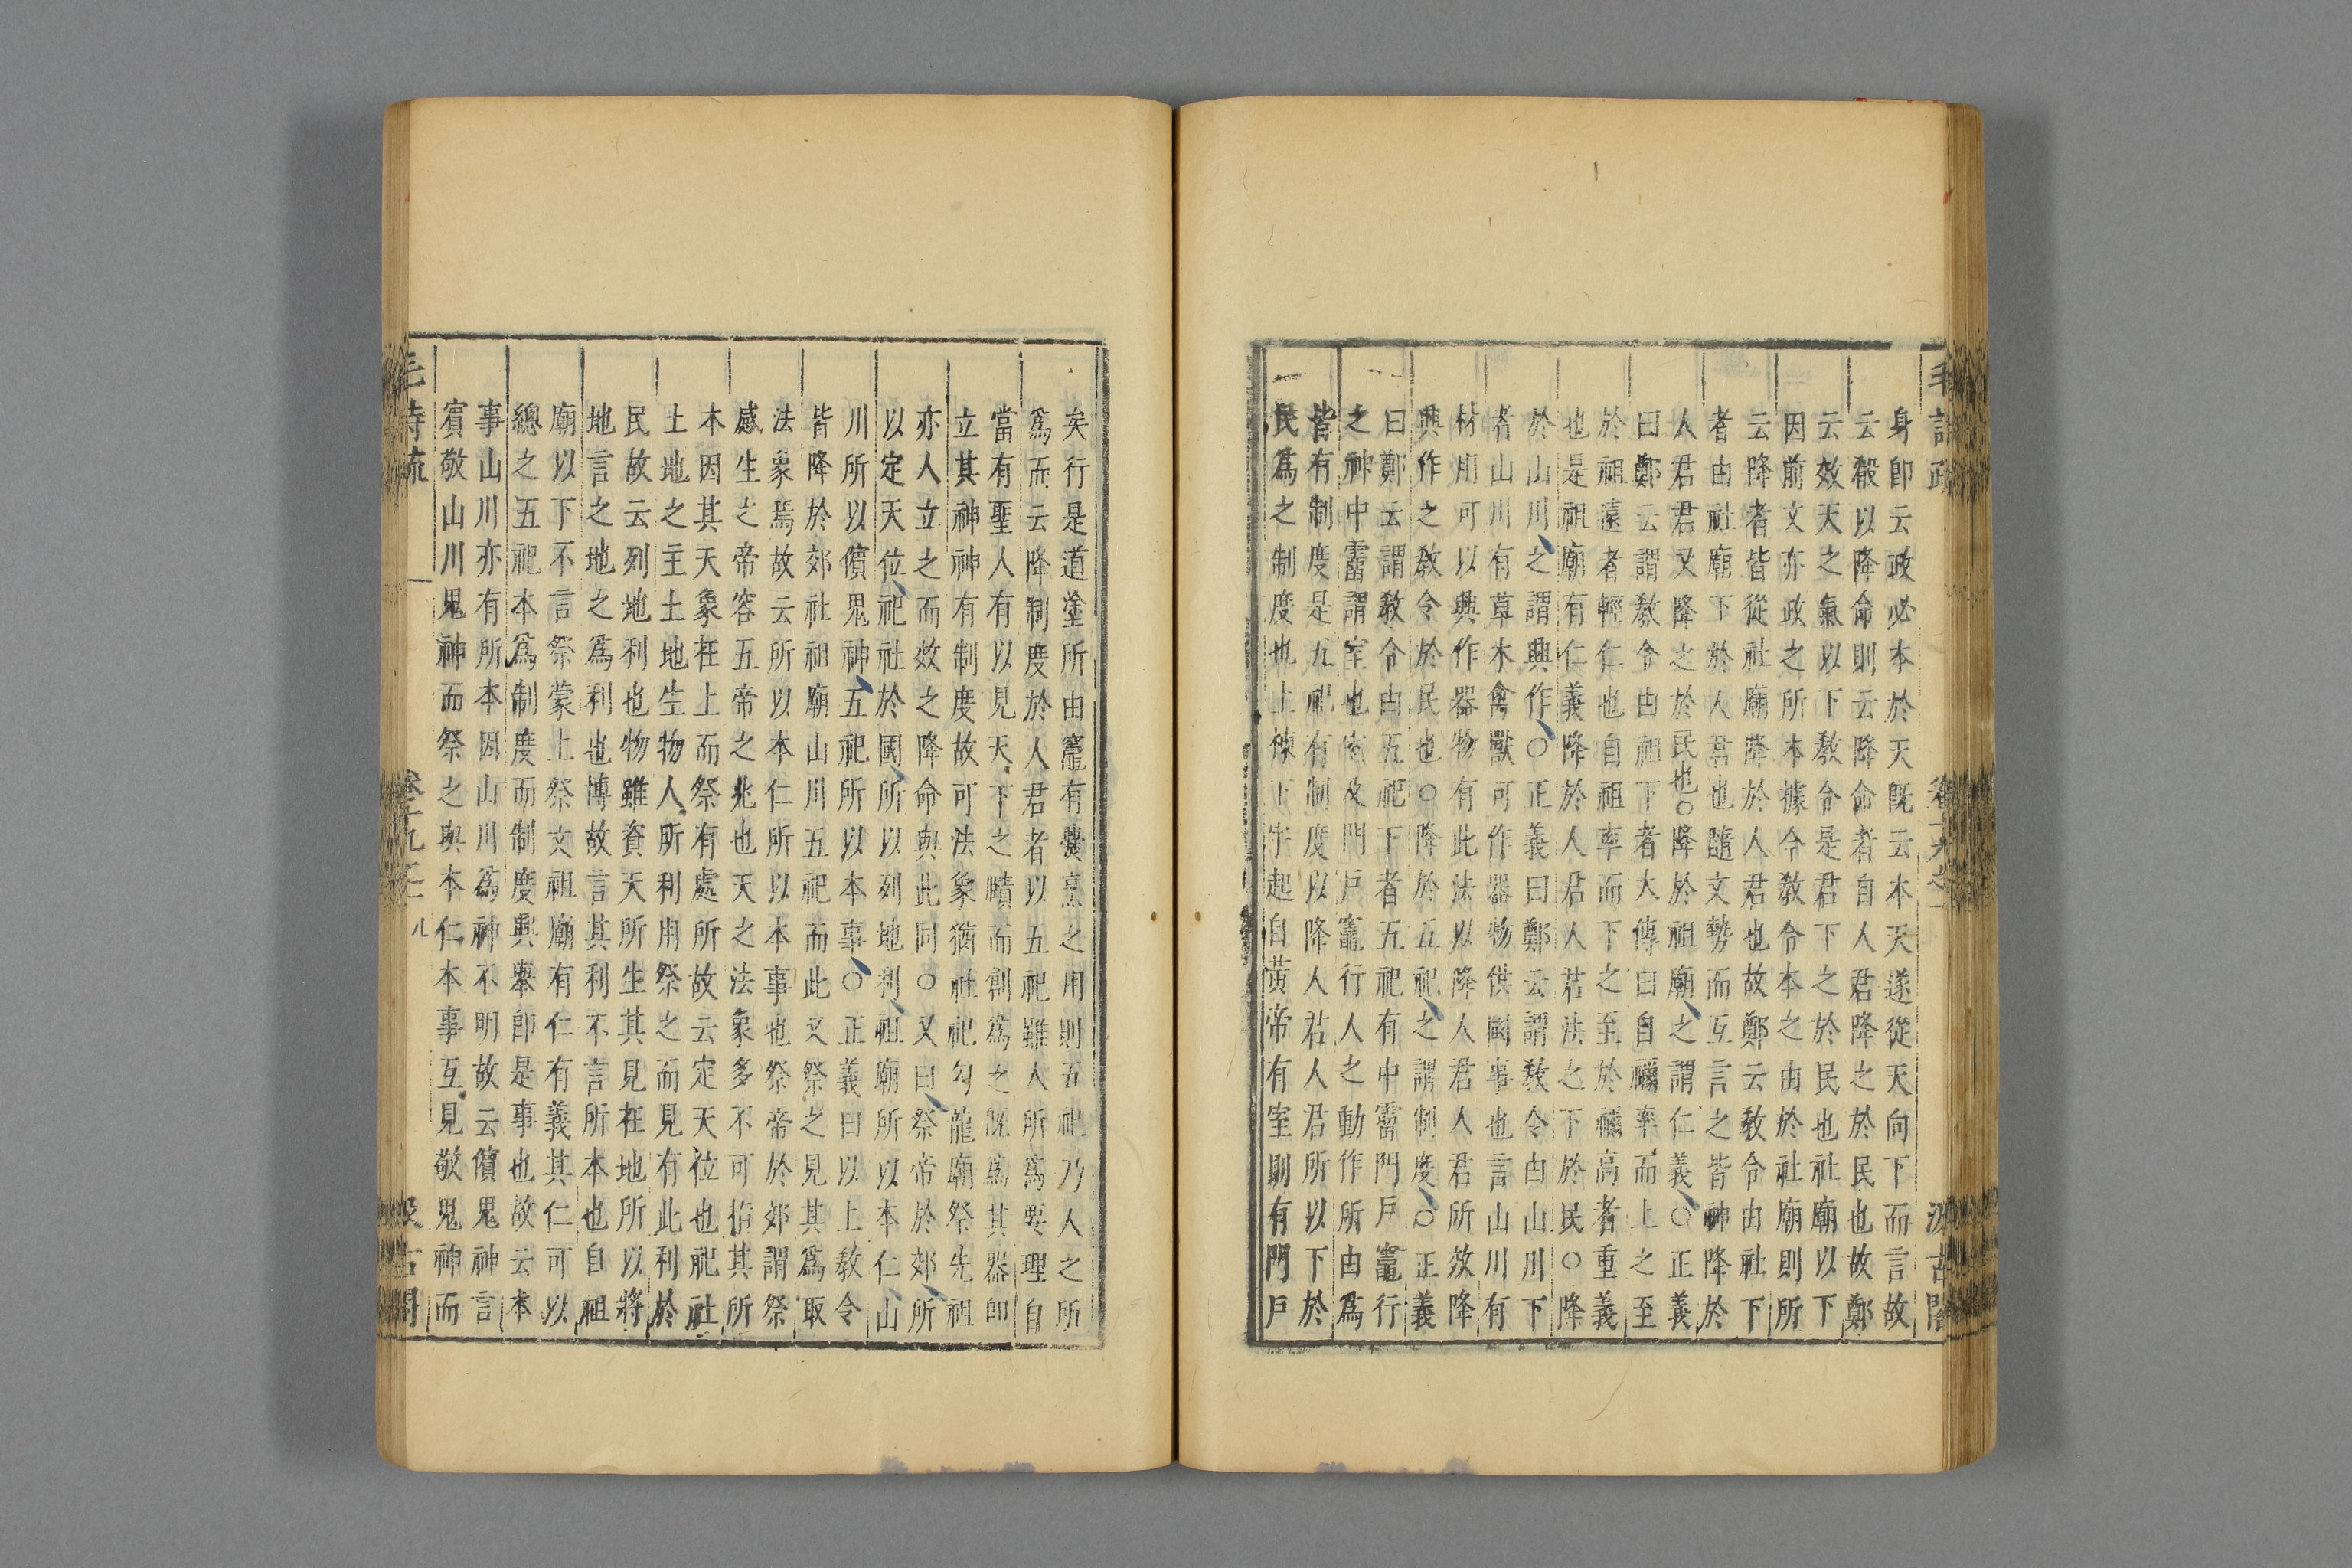 身卽云政必本於天旣云本天遂從天向下而言故
云殽以降命則云降命者自人君降之於民也故鄭
云效天之氣以下敎令是君下之於民也社廟以下
因前文亦政之所本據令敎令本之由於社廟則所
云降者皆從社廟降於人君也故鄭云敎令由社下
者由社廟下於人君也隨文勢而互言之皆神降於
人君君又降之於民也○降於祖廟之謂仁義○正義
曰鄭云謂敎令由祖下者大傳曰自禰率而上之至
於祖遠者輕仁也自祖率而下之至於禰高者重義
也是祖廟有仁義降於人君人君法之下於民○降
於山川之謂興作○正義曰鄭云謂敎令由山川下
者山川有草木禽獸可作器物供國事也言山川有
材用可以興作器物有此法以降人君人君所效降
興作之敎令於民也○降於五祀之謂制度○正義
曰鄭云謂敎令由五祀下者五祀有中霤門戶竈行
之神中霤謂室也室及門戶竈行人之動作所由爲
皆有制度是五祀有制度以降人君人君所以下於
民爲之制度也上棟下宇起自黃帝有室則有門戶
矣行是道塗所由竈有爨烹之用則五祀乃人之所
爲而云降制度於人君者以五祀雖人所爲要理自
當有聖人有以見天下之賾而創爲之旣爲其器卽
立其神神有制度故可法象猶社祀勾龍廟祭先祖
亦人立之而效之降命與此同○又曰祭帝於郊所
以定天位祀社於國所以列地利祖廟所以本仁山
川所以儐鬼神五祀所以本事○正義曰以上敎令
皆降於郊社祖廟山川五祀而此文祭之見其爲取
法象焉故云所以本仁所以本事也祭帝於郊謂祭
感生之帝容五帝之兆也天之法象多不可指其所
本因其天象在上而祭有處所故云定天位也祀社
土地之主土地生物人所利用祭之而見有此利於
民故云列地利也物雖資天所生其見在地所以將
地言之地之爲利也博故言其利不言所本也自祖
廟以下不言祭蒙上祭文祖廟有仁有義其仁可以
總之五祀本爲制度而制度興舉卽是事也故云本
事山川亦有所本因山川爲神不明故云儐鬼神言
賓敬山川鬼神而祭之與本仁本事互見敬鬼神而